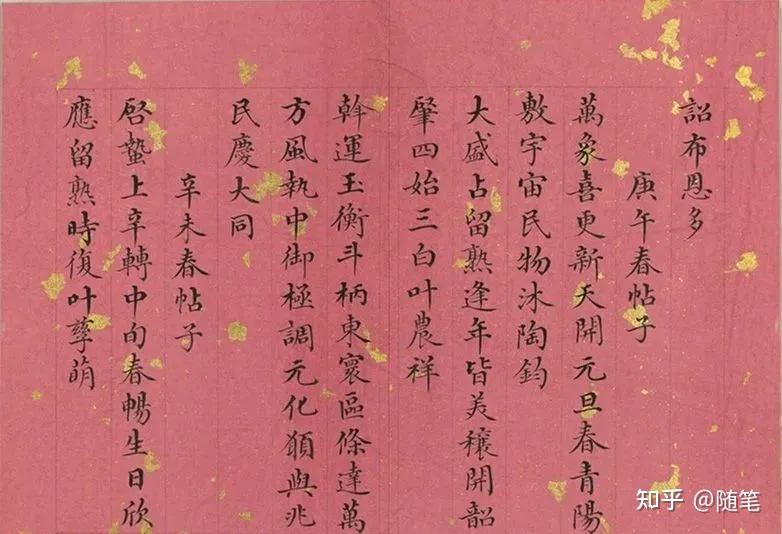 詔布恩多
庚午春帖子
萬象喜更新天開元旦春青陽
敷宇宙民物沐陶鈞
大盛占留熟逢年皆美穰開韶
肇四始三白叶農祥
斡運玉衡斗柄東寰區條達萬
方風執中御極調元化願與兆
民慶大同
辛未春帖子
啓蟄上辛轉中旬春暢生日欣
應留熟時復叶孳萌
知乎 @随笔